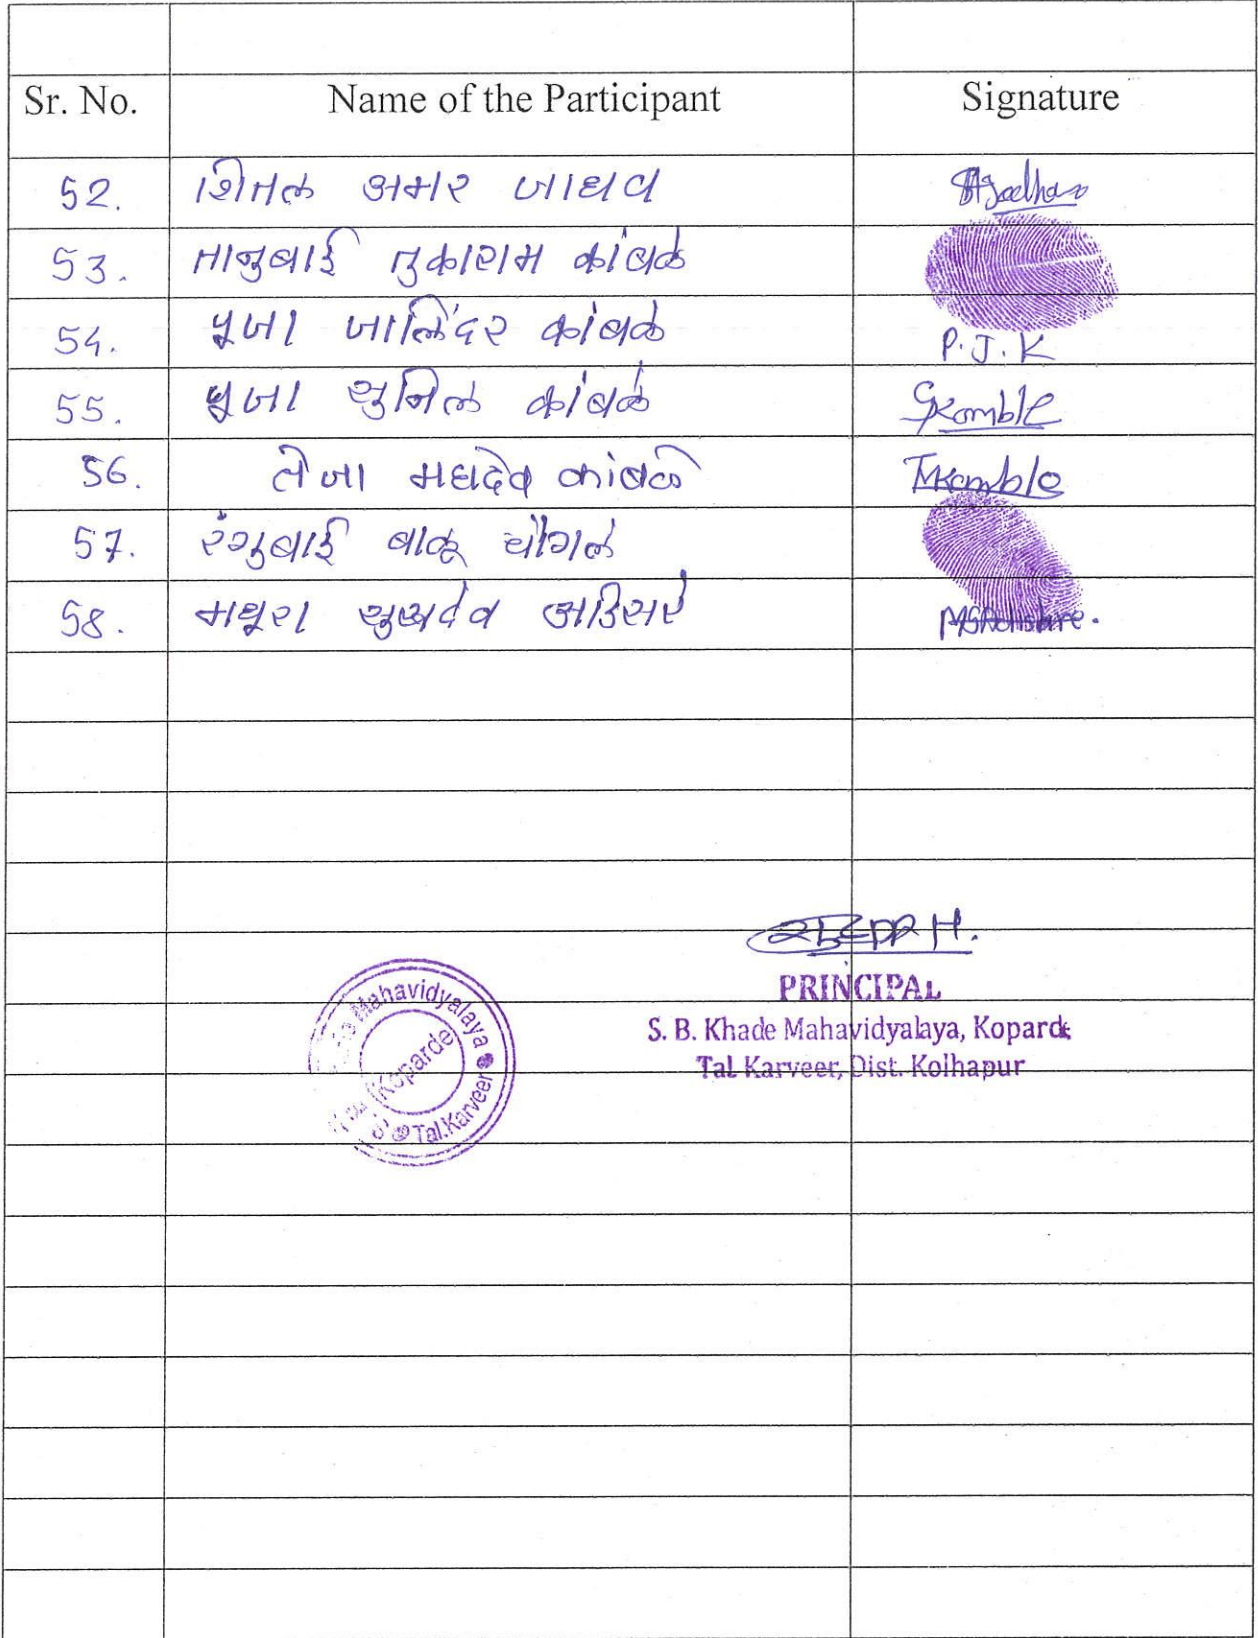 Sr. No. Name of the Participant Signature
52. शितल अमर जाधव SAJadhav
53. तानुबाई तुकाराम कांबळे
54. पूजा जालिंदर कांबळे P.J.K
55. पूजा सुनिल कांबळे Kamble
56. तेजा महादेव कांबळे TMKamble
57. रंगुबाई बाळू चौगले
58. मथूरा सुखदेव अडिसरे
PRINCIPAL
S. B. Khade Mahavidyalaya, Koparde
Tal. Karveer, Dist. Kolhapur
Mahavidyalaya
Koparde
Tal.Karveer